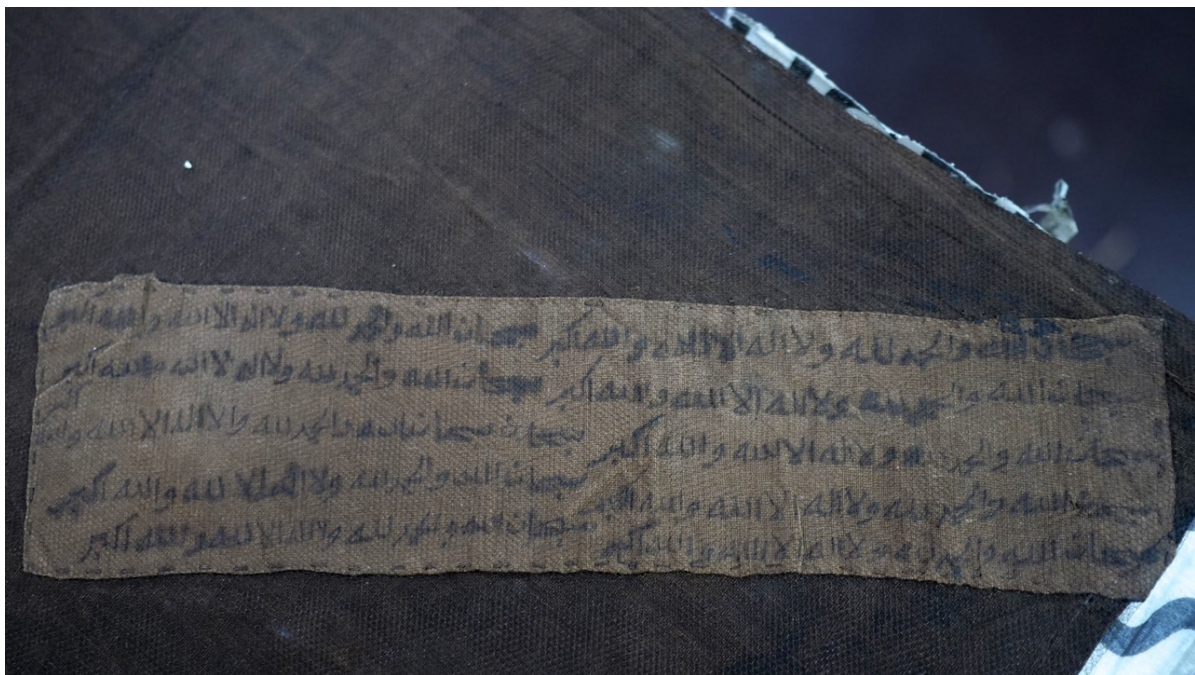 سبحان الله والحمد لله ولا اله الا الله والله اكبر سبحان الله والحمد لله ولا اله الا الله والله اكبر
سبحان الله والحمد لله ولا اله الا الله والله اكبر سبحان الله والحمد لله ولا اله الا الله والله اكبر
سبحان الله والحمد لله ولا اله الا الله والله اكبر سبحان سبحان الله والحمد لله ولا اله الا الله والله
اكبر
سبحان الله والحمد لله ولا اله الا الله والله اكبر سبحان الله والحمد لله ولا اله الا لله والله اكبر
سبحان الله والحمد لله ولا اله الا الله والله اكبر سبحان الله والحمد لله ولا اله الا لله والله اكبر